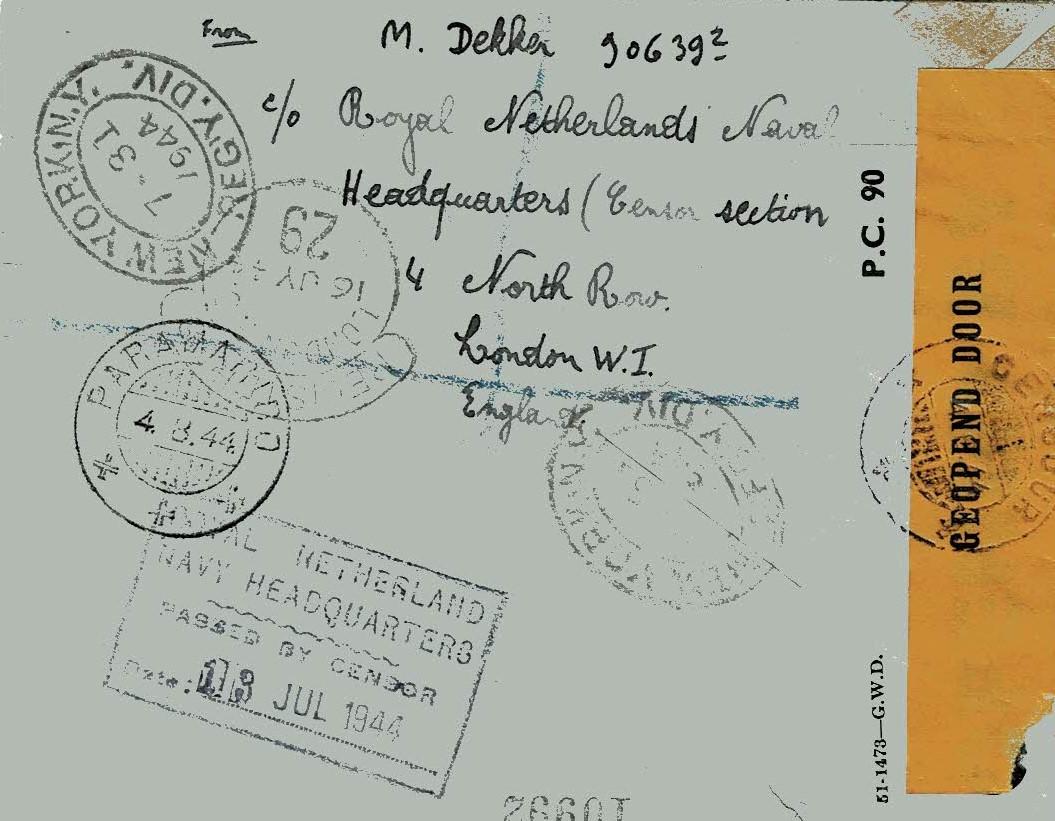 From M. Dekker 90639²
c/o Royal Netherlands Naval
Headquarters (Censor section
4 North Row.
London W.I.
England.
NEW YORK, N.Y. REGY. DIV.
7-31
1944
29
16 JY 4
PARAMARIBO
4.8.44
ROYAL NETHERLAND
NAVY HEADQUARTERS
PASSED BY CENSOR
Date: 13 JUL 1944
P.C. 90
GEOPEND DOOR
CENSUUR
51-1473—G.W.D.